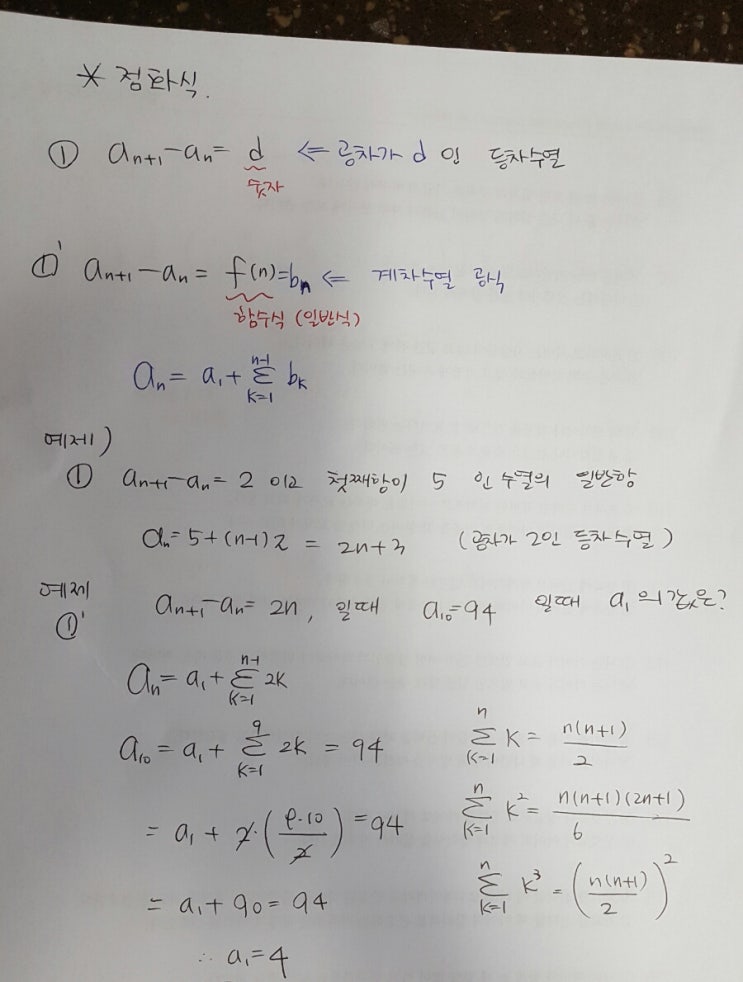 * 점화식.
① aₙ₊₁-aₙ= d ⇐ 공차가 d 인 등차수열
숫자
①' aₙ₊₁-aₙ = f(n)=bₙ ⇐ 계차수열 공식
함수식 (일반식)
aₙ= a₁+ Σ_{K=1}^{n-1} bₖ
예제)
① aₙ₊₁-aₙ= 2 이고 첫째항이 5 인 수열의 일반항
aₙ= 5+(n-1)2 = 2n+3 (공차가 2인 등차수열)
예제
①' aₙ₊₁-aₙ= 2n, 일때 a₁₀=94 일때 a₁의 값은?
aₙ= a₁+ Σ_{K=1}^{n-1} 2K
a₁₀ = a₁+ Σ_{K=1}^{9} 2K = 94
= a₁ + 2·(9·10/2) = 94
= a₁+90 = 94
∴ a₁=4
Σ_{K=1}^{n} K = n(n+1)/2
Σ_{K=1}^{n} K² = n(n+1)(2n+1)/6
Σ_{K=1}^{n} K³ = (n(n+1)/2)²